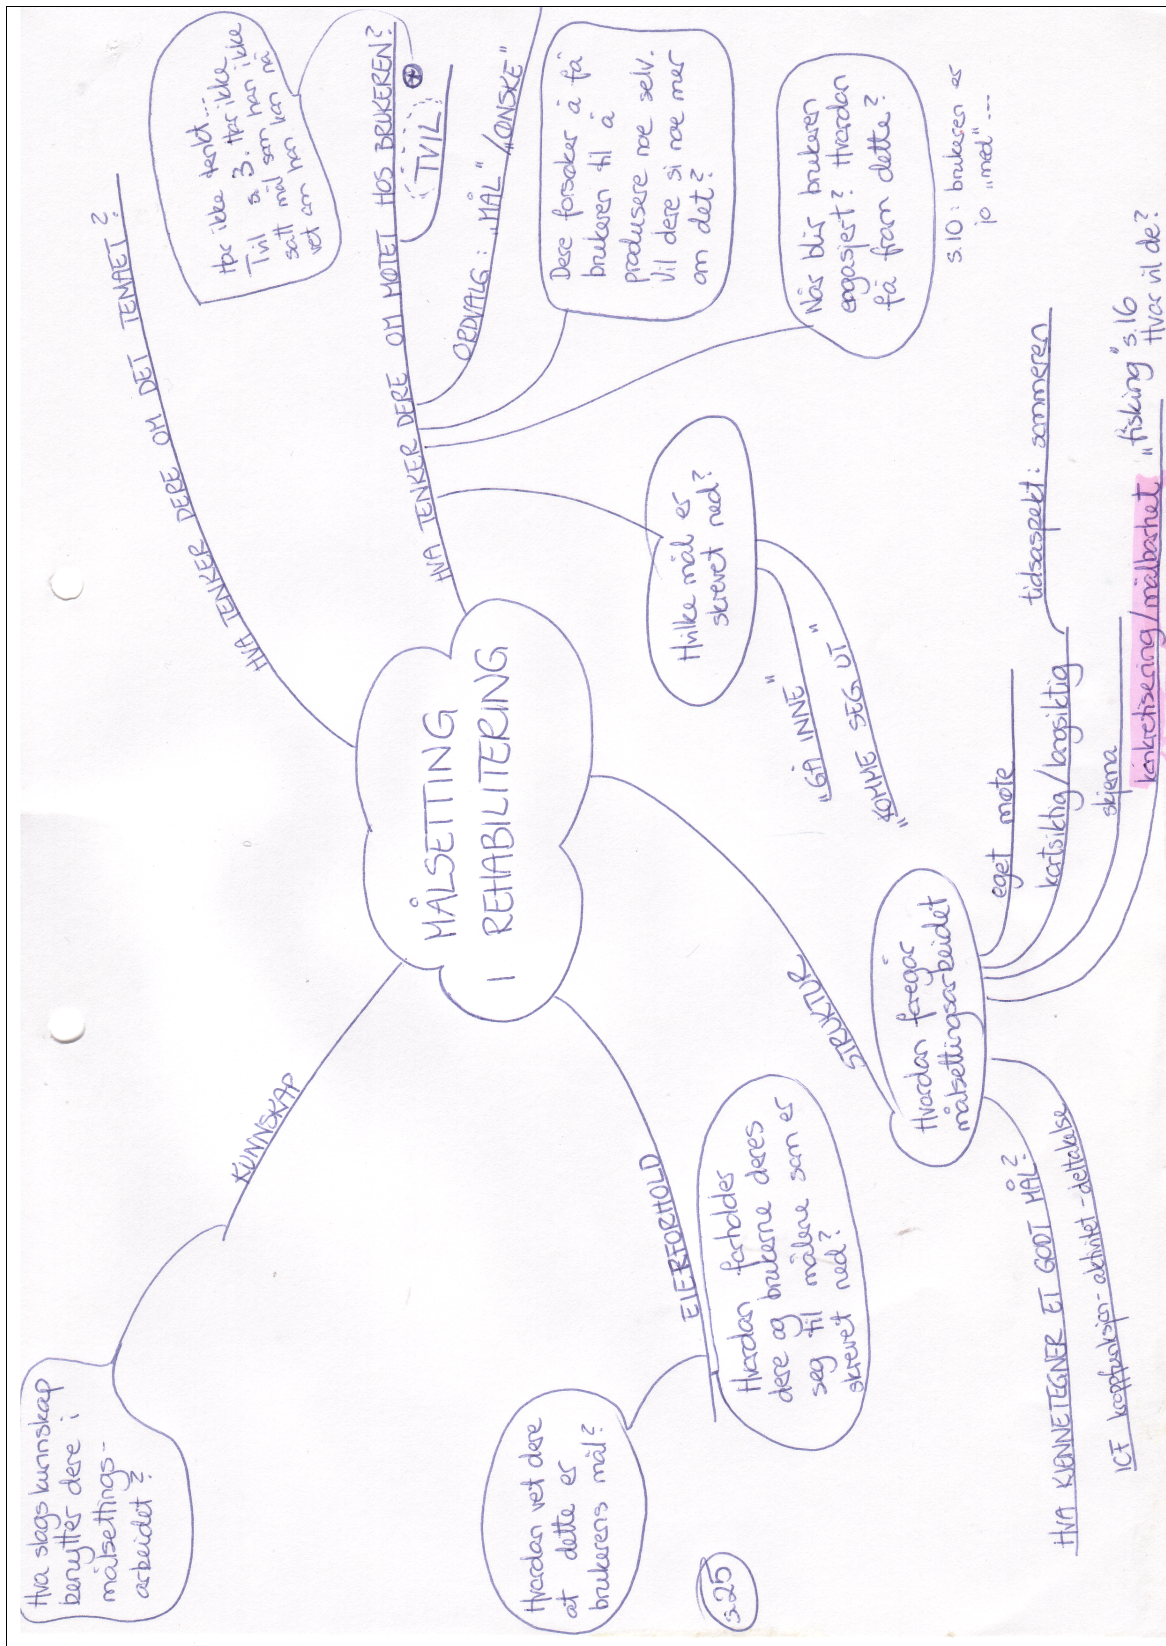 MÅLSETTING
I REHABILITERING
HVA TENKER DERE OM DET TEMAET?
HVA TENKER DERE OM MØTET HOS BRUKEREN?
Har ikke tenkt...
Tvil s. 3. Har ikke
satt mål som han ikke
vet om han kan nå
TVIL
ORDVALG: "MÅL"/"ØNSKE"
Dere forsøker å få
brukeren til å
produsere noe selv.
Vil dere si noe mer
om det?
Når blir brukeren
engasjert? Hvordan
få fram dette?
s.10: brukeren er
jo "med"...
Hvilke mål er
skrevet ned?
"GÅ INNE"
"KOMME SEG UT"
STRUKTUR
Hvordan foregår
målsettingsarbeidet
eget møte
kortsiktig/langsiktig
tidsaspekt: sommeren
skjema
konkretisering/målbarhet
"fisking" s.16
Hvor vil de?
HVA KJENNETEGNER ET GODT MÅL?
ICF kroppfunksjon-aktivitet-deltakelse
EIERFORHOLD
Hvordan forholder
dere og brukerne deres
seg til målene som er
skrevet ned?
Hvordan vet dere
at dette er
brukerens mål?
s.25
KUNNSKAP
Hva slags kunnskap
benytter dere i
målsettings-
arbeidet?